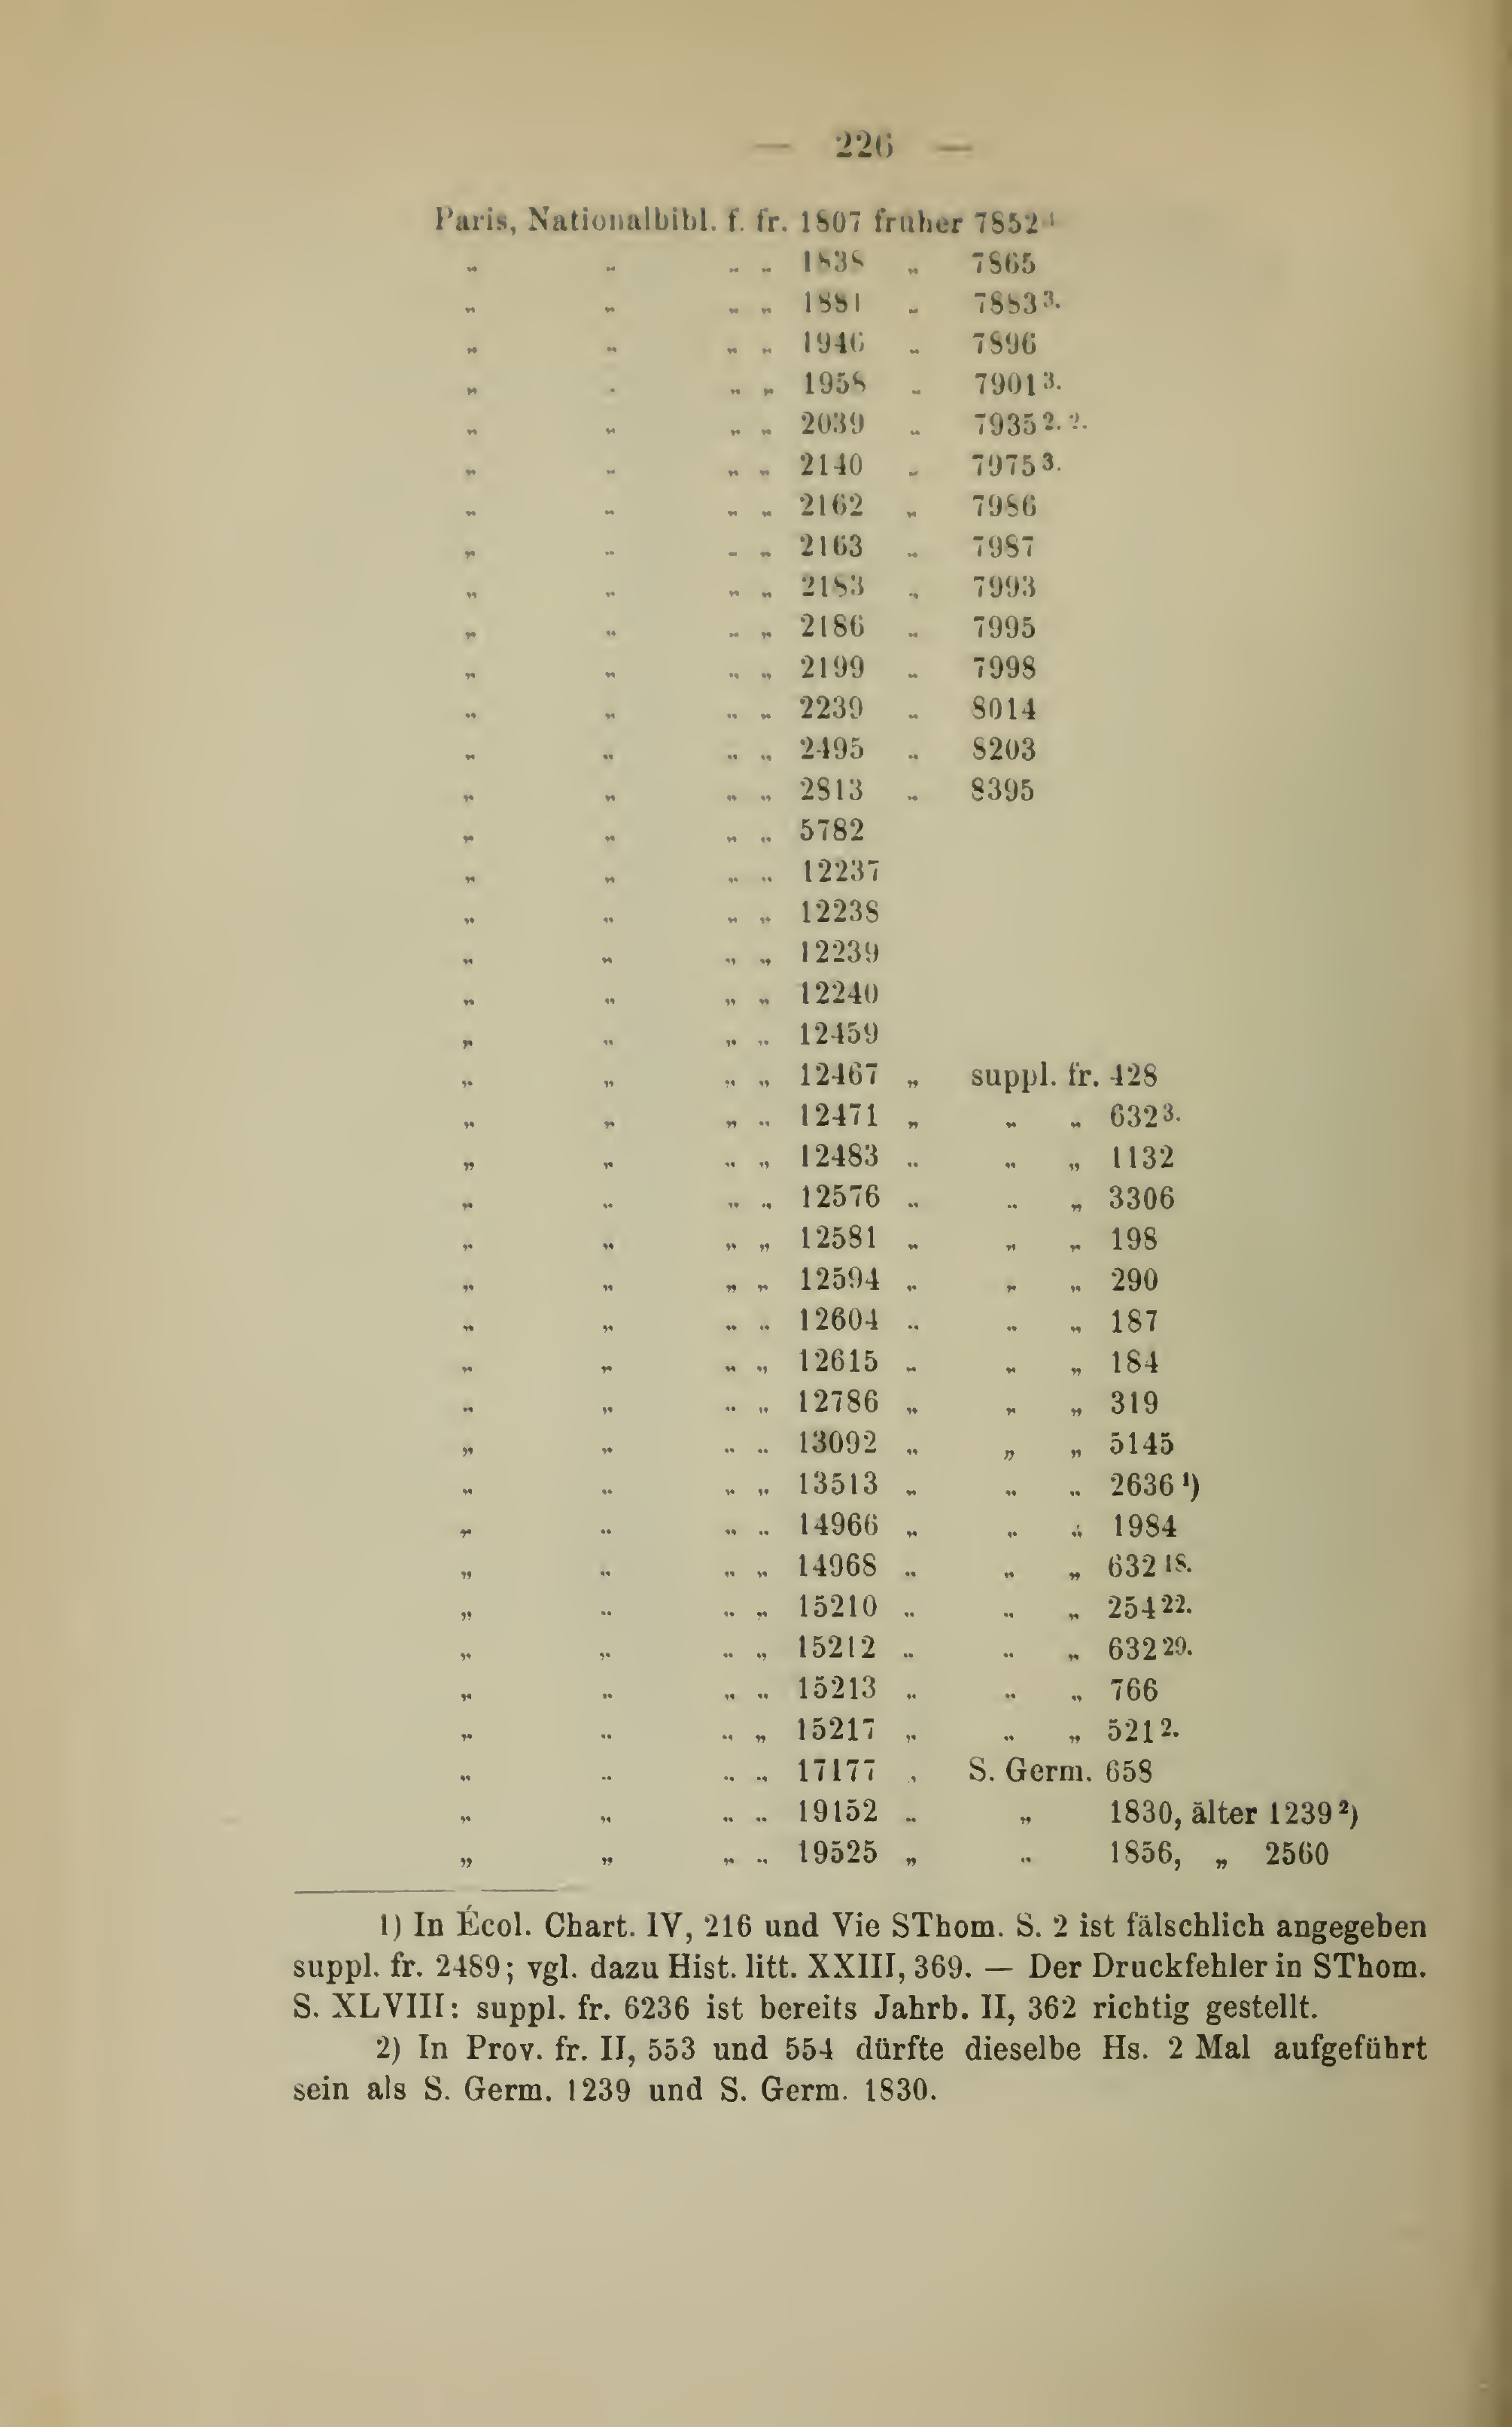 — 226 —
Paris, Nationalbibl. f. fr. 1807 früher 7852
„ „ „ „ 1838 „ 7865
„ „ „ „ 1881 „ 7883 3.
„ „ „ „ 1946 „ 7896
„ „ „ „ 1958 „ 7901 3.
„ „ „ „ 2039 „ 7935 2. 2.
„ „ „ „ 2140 „ 7975 3.
„ „ „ „ 2162 „ 7986
„ „ „ „ 2163 „ 7987
„ „ „ „ 2183 „ 7993
„ „ „ „ 2186 „ 7995
„ „ „ „ 2199 „ 7998
„ „ „ „ 2239 „ 8014
„ „ „ „ 2495 „ 8203
„ „ „ „ 2813 „ 8395
„ „ „ „ 5782
„ „ „ „ 12237
„ „ „ „ 12238
„ „ „ „ 12239
„ „ „ „ 12240
„ „ „ „ 12459
„ „ „ „ 12467 „ suppl. fr. 428
„ „ „ „ 12471 „ „ „ 632 3.
„ „ „ „ 12483 „ „ „ 1132
„ „ „ „ 12576 „ „ „ 3306
„ „ „ „ 12581 „ „ „ 198
„ „ „ „ 12594 „ „ „ 290
„ „ „ „ 12604 „ „ „ 187
„ „ „ „ 12615 „ „ „ 184
„ „ „ „ 12786 „ „ „ 319
„ „ „ „ 13092 „ „ „ 5145
„ „ „ „ 13513 „ „ „ 2636 ¹)
„ „ „ „ 14966 „ „ „ 1984
„ „ „ „ 14968 „ „ „ 632 18.
„ „ „ „ 15210 „ „ „ 254 22.
„ „ „ „ 15212 „ „ „ 632 29.
„ „ „ „ 15213 „ „ „ 766
„ „ „ „ 15217 „ „ „ 521 2.
„ „ „ „ 17177 „ S. Germ. 658
„ „ „ „ 19152 „ „ 1830, älter 1239 ²)
„ „ „ „ 19525 „ „ 1856, „ 2560
1) In École. Chart. IV, 216 und Vie SThom. S. 2 ist fälschlich angegeben
suppl. fr. 2489; vgl. dazu Hist. litt. XXIII, 369. — Der Druckfehler in SThom.
S. XLVIII: suppl. fr. 6236 ist bereits Jahrb. II, 362 richtig gestellt.
2) In Prov. fr. II, 553 und 554 dürfte dieselbe Hs. 2 Mal aufgeführt
sein als S. Germ. 1239 und S. Germ. 1830.